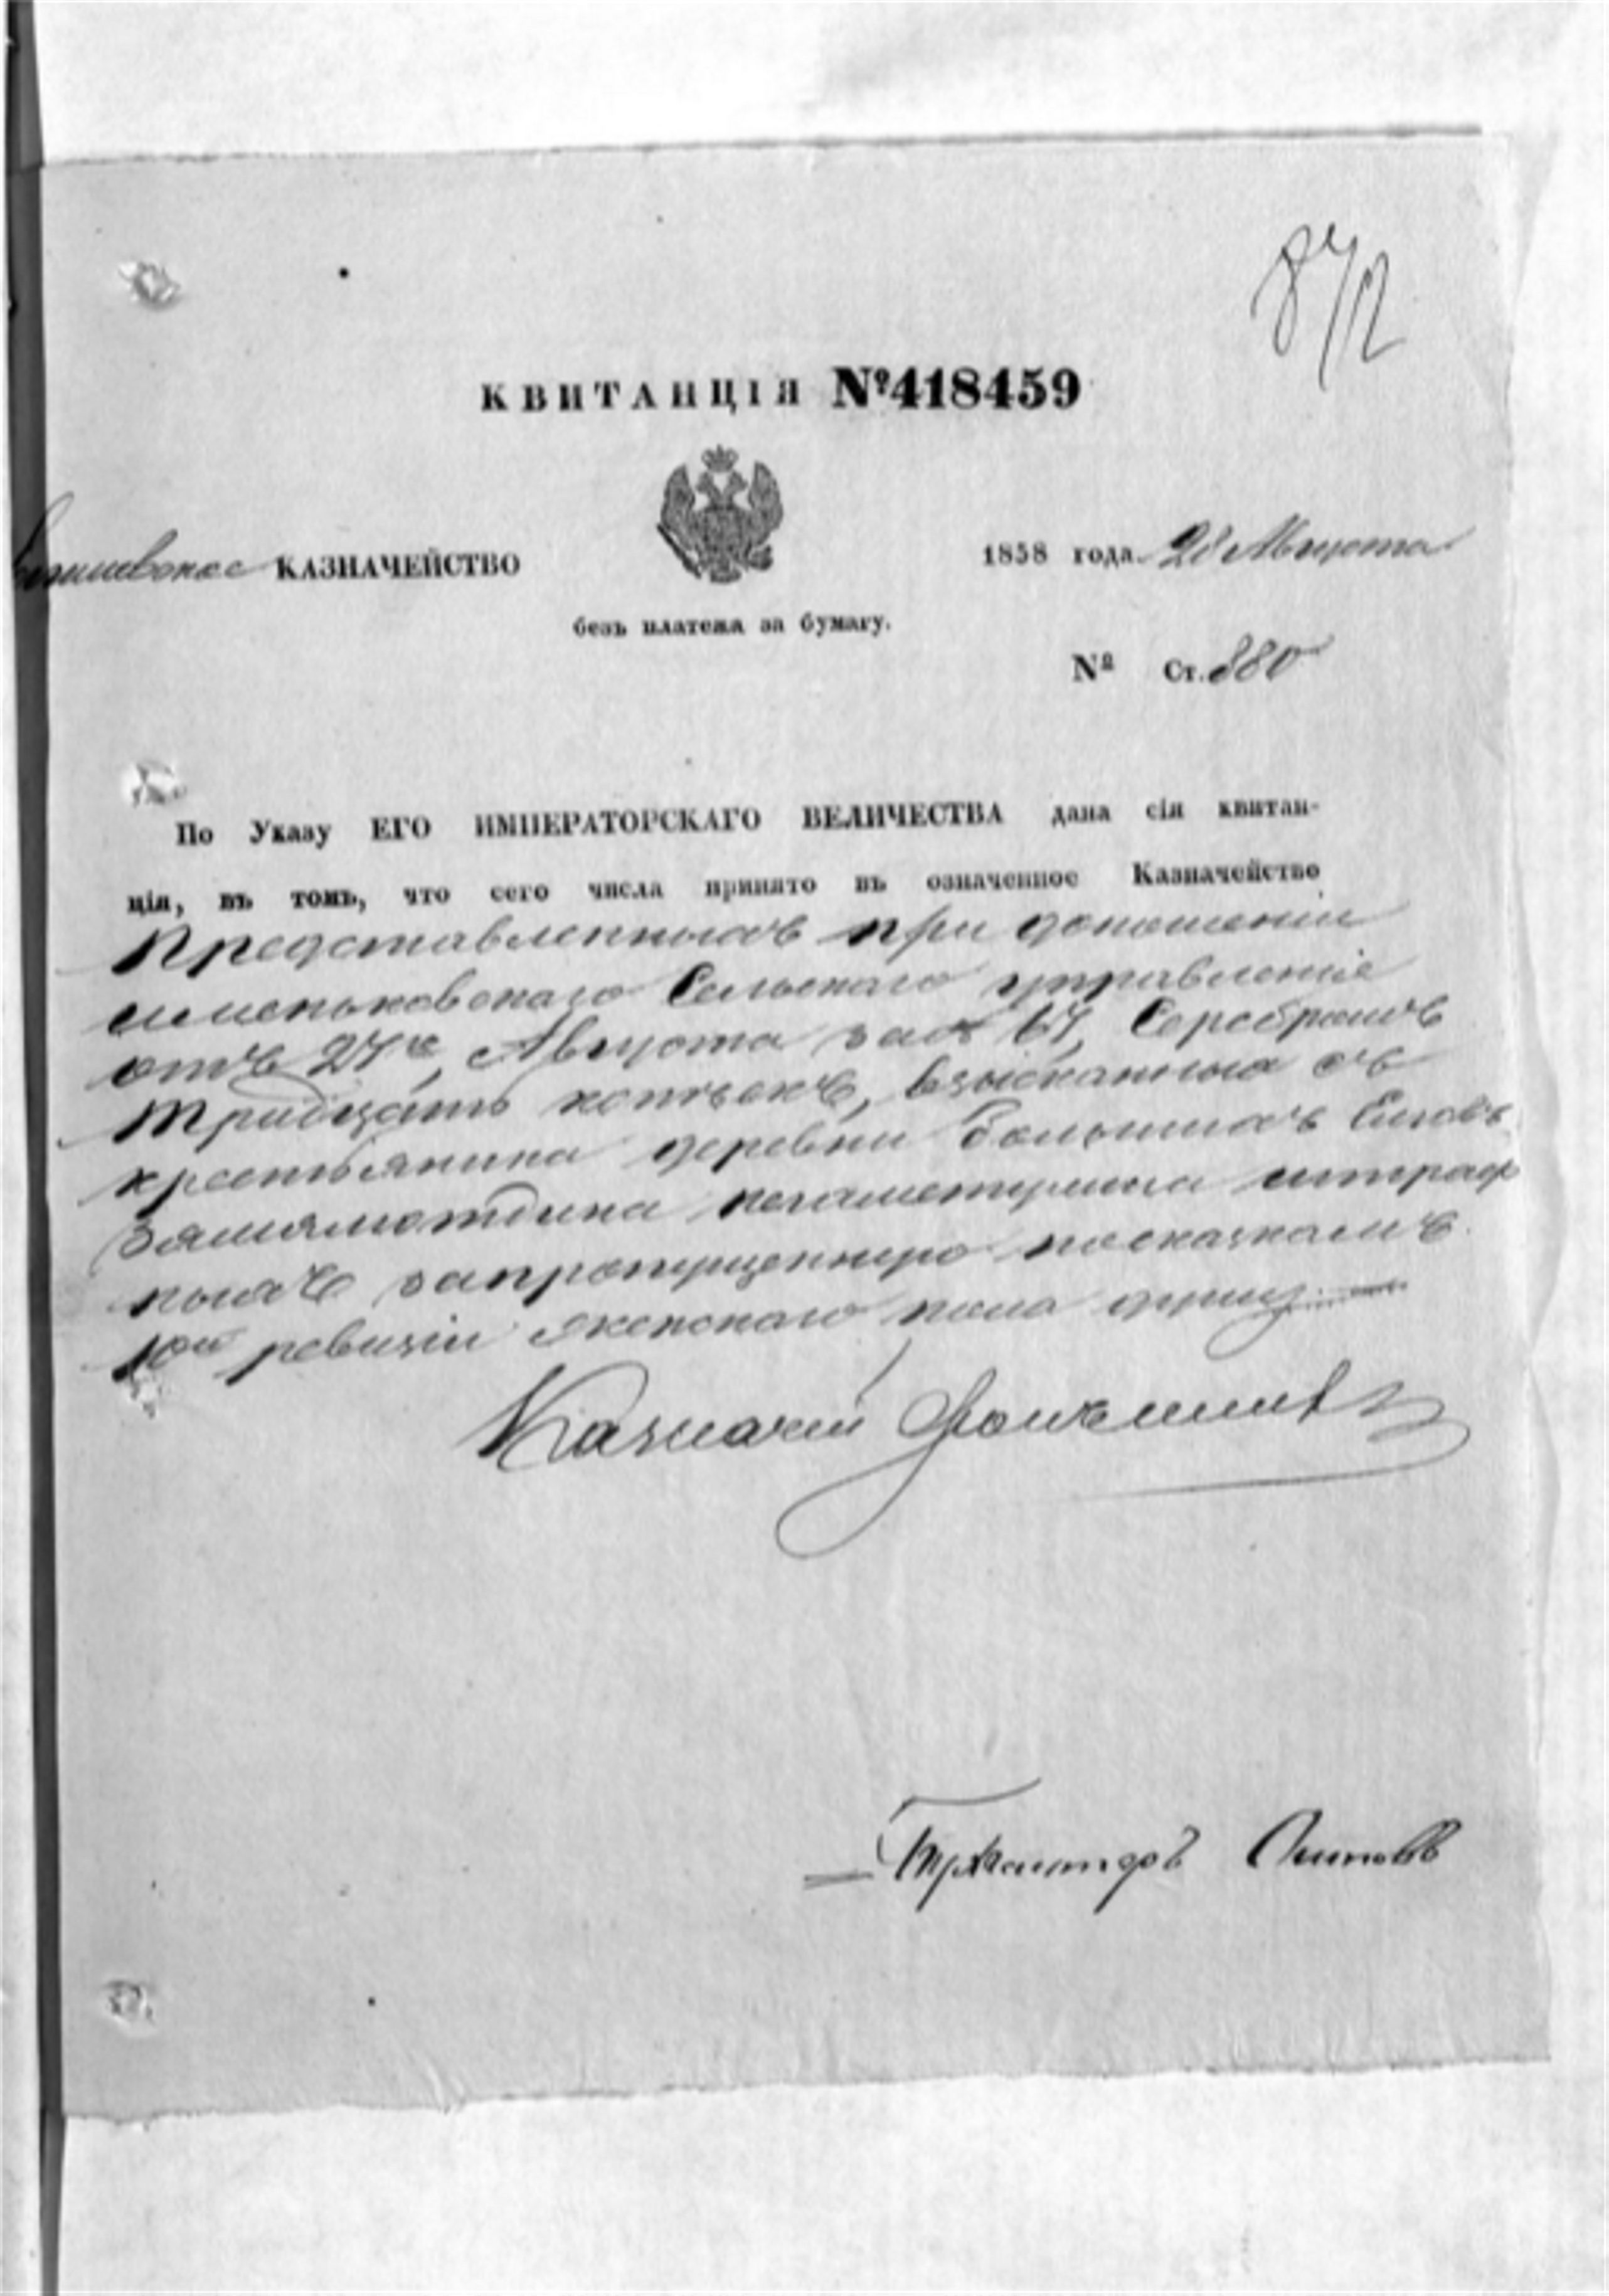 КВИТАНЦІЯ №418459
КАЗНАЧЕЙСТВО
1858 года 28 Августа
безъ платежа за бумагу.
№ Ст. 880
По Указу ЕГО ИМПЕРАТОРСКАГО ВЕЛИЧЕСТВА дана сія квитан-
ція, въ томъ, что сего числа принято въ означенное Казначейство
Представленныхъ при доношеніи
Сельскаго управленія
отъ 27го Августа за № 67, Серебромъ
тридцать копѣекъ, взысканныя съ
крестьянина деревни Большихъ
штраф
ныхъ за пропущенную по сказкамъ
10й ревизіи женскаго пола душу
Казначей